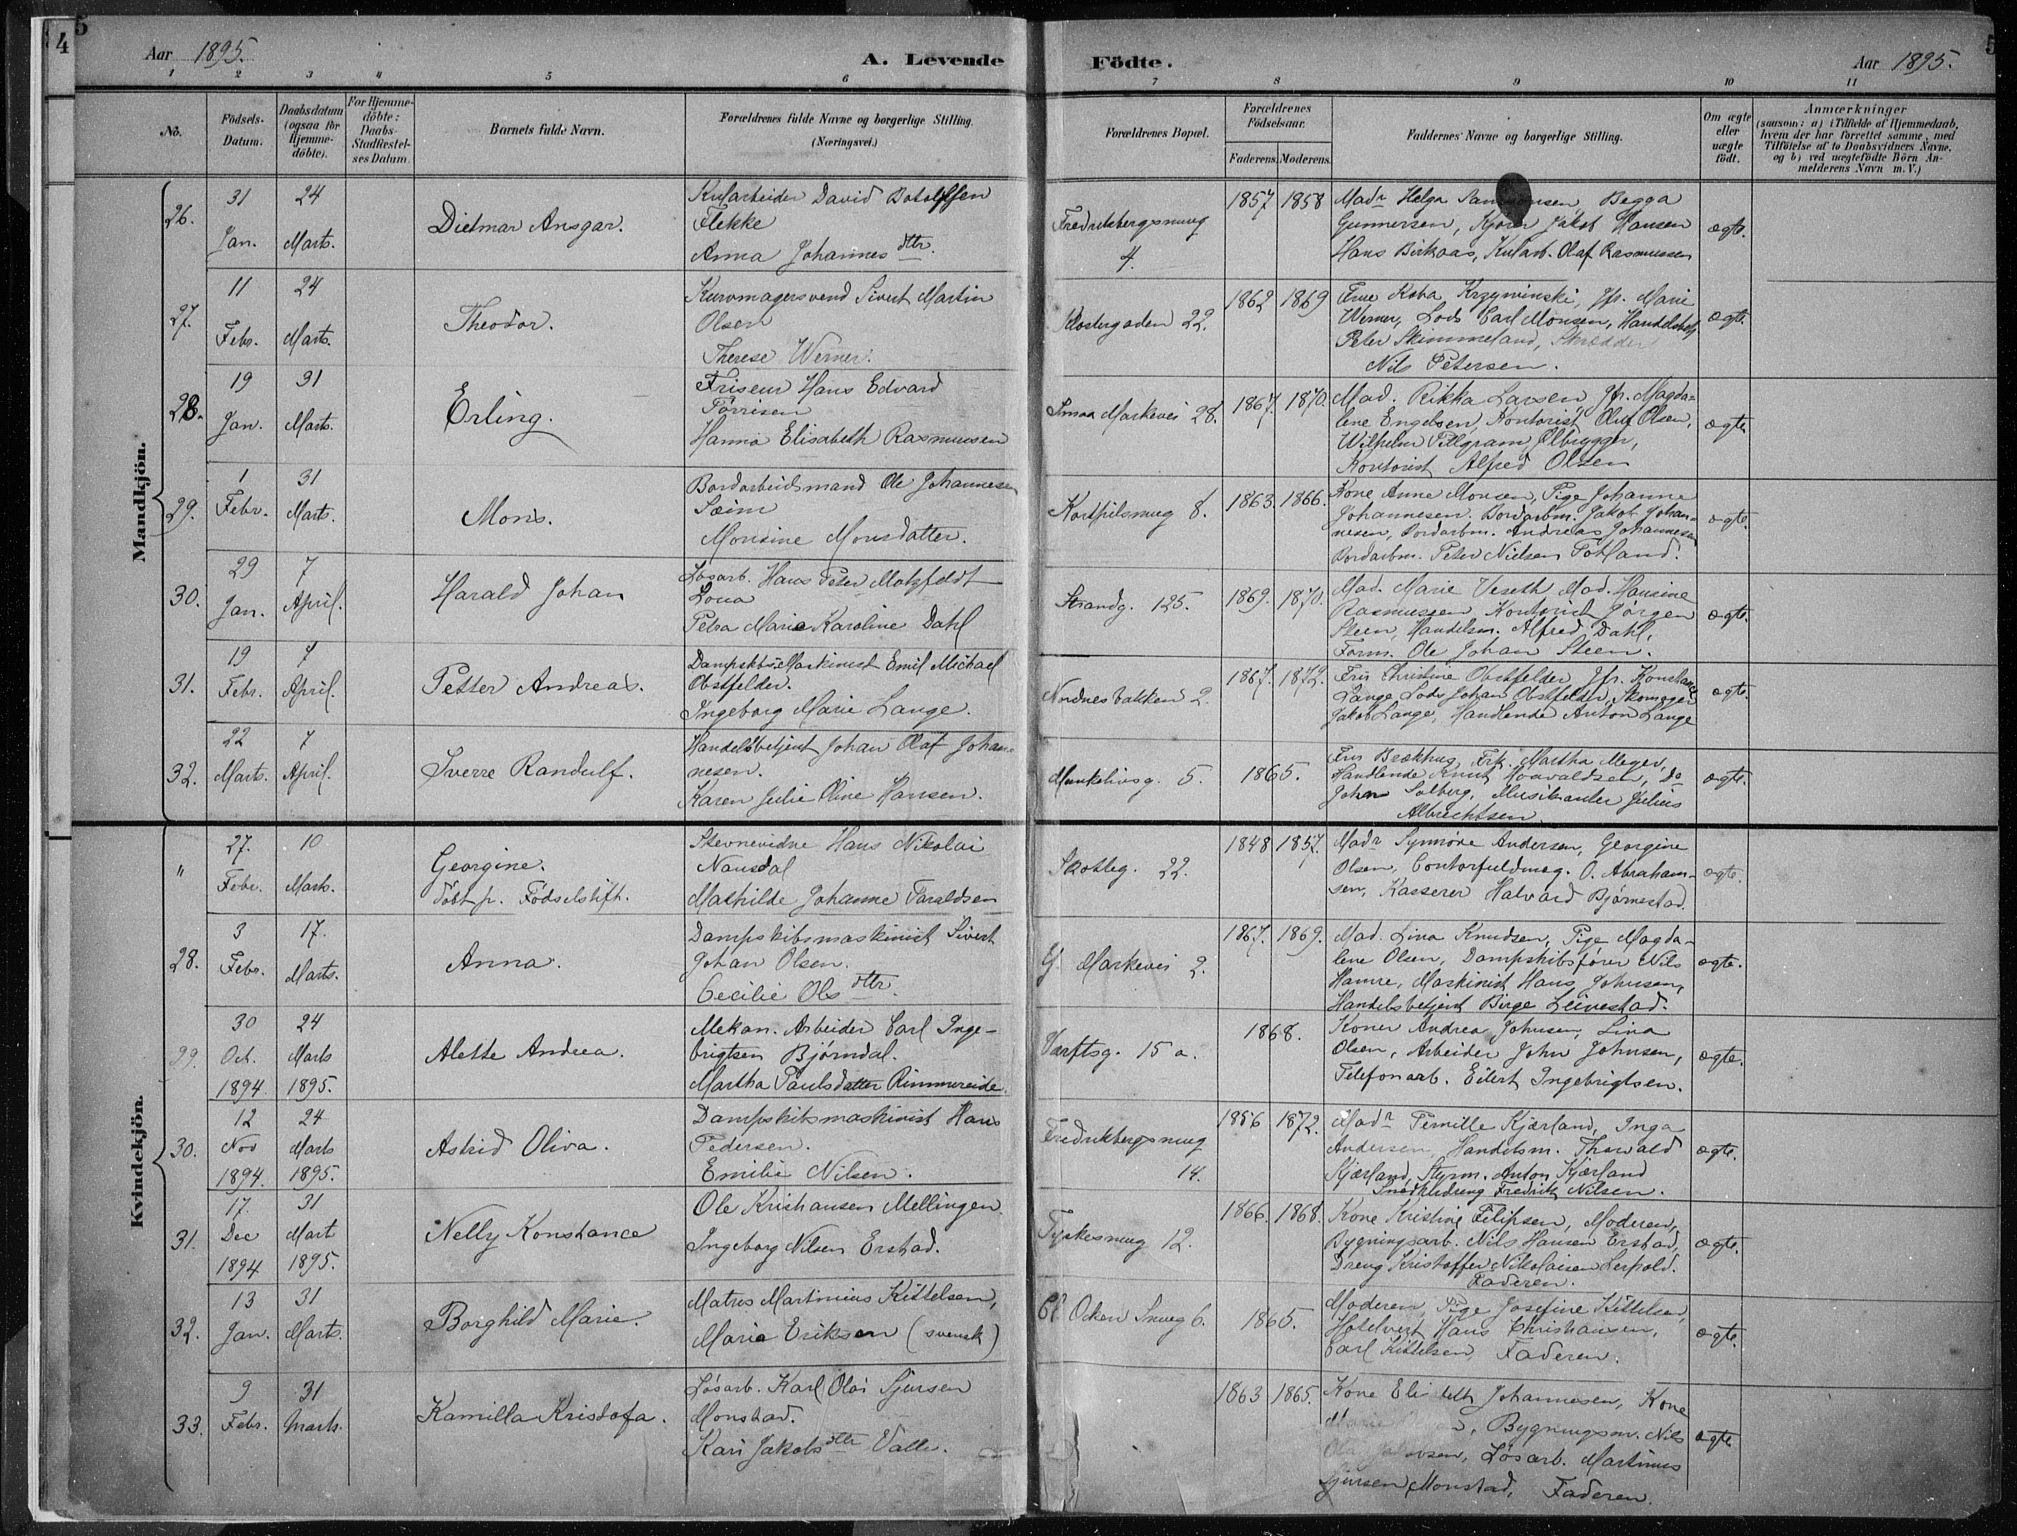 5
4
Aar 1895.
A. Levende Födte.
Aar 1895.
5
1 2 3 4 5 6 7 8 9 10 11
No.
Födsels-Datum.
Daabsdatum (ogsaa for Hjemme-döbte).
For Hjemme-döbte: Daabs-Stadfæstel-ses Datum.
Barnets fulde Navn.
Forældrenes fulde Navne og borgerlige Stilling. (Næringsvei.)
Forældrenes Bopæl.
Forældrenes Födselsaar.
Faderens. Moderens.
Faddernes Navne og borgerlige Stilling.
Om ægte eller uægte födt.
Anmærkninger
(saasom: a) i Tilfælde af Hjemmedaab, hvem der har forrettet samme, med Tilföielse af to Daabsvidners Navne, og b) ved uægtefödte Börn An-melderens Navn m. V.)
Mandkjön.
26.
31 Jan.
24 Marts.
Dietmar Ansgar.
Kularbeider David Botolfsen
Flekke
Anna Johannesdttr.
Fredriksbergsmug
4.
1857 1858
Madr Helga Samsonsen, Begga
Gunnersen, Kjører Jakob Hansen
Hans Birkaas, Kularb. Olaf Rasmussen
ægte.
27.
11 Febr.
24 Marts.
Theodor.
Kurvmagersvend Sivert Martin
Olsen
Therese Werner.
Klostergaden 22.
1862 1869
Frue Koba Krzywinski, Jfr. Marie
Werner, Lods Carl Monsen, Handelsbetj.
Peter Skimmeland, Skrædder
Nils Petersen.
ægte.
28.
19 Jan.
31 Marts.
Erling.
Friseur Hans Edvard
Törrisen
Hanna Elisabeth Rasmussen
Smaa Markevei 28.
1867. 1870.
Mad. Rikka Larsen, Jfr. Magda-
lene Engelsen, Kontorist Oluf Olsen,
Wilhelm Pillgram, Ølbrygger,
Kontorist Alfred Olsen
ægte.
29.
1 Febr.
31 Marts.
Mons.
Bordarbeidsmand Ole Johannesen
Sæim
Monsine Monsdatter.
Kortpilsmug 8.
1863. 1866.
Kone Anne Monsen, Pige Johanne
Johannesen. Bordarbm. Jakob Johan-
nesen, Bordarbm. Andreas Johannesen
Bordarbm. Peter Nielsen Totland.
ægte.
30.
29 Jan.
7 April.
Harald Johan
Løsarb. Hans Peter Motzfeldt
Petra Marie Karoline Dahl
Strandg. 125.
1869. 1870.
Mad. Marie Veseth Mad. Hansine
Rasmussen, Kontorist Jörgen
Steen, Handelsm. Alfred Dahl,
Form. Ole Johan Steen.
ægte.
31.
19 Febr.
7 April.
Petter Andreas.
Dampskbs: Maskinist Emil Michael
Obstfelder.
Ingeborg Marie Lange.
Nordnesbakken 2.
1867. 1872.
Frø Christine Obstfelder, Jfr. Konstance
Lange, Lods Johan Obstfelder, Skomager
Jakob Lange, Handlende Anton Lange
ægte.
32.
22 Marts.
7 April.
Sverre Randulf.
Handelsbetjent Johan Olaf Johan-
nesen.
Karen Julie Oline Hansen.
Munkelivsg. 5.
1865.
Fru Brækhus, Frk. Martha Meyer,
Handlende Knut Haavaldsen, do
John Solberg, Musikanter Julius
Albrechtsen.
ægte.
Kvindekjön.
"
27. Febr.
10 Mark.
Georgine.
Döbt p. Födselsstift.
Stevnevidne Hans Nikolai
Nansdal
Mathilde Johanne Taraldsen
Skotteg. 22.
1848 1857.
Madr Synnöve Andersen, Georgine
Olsen, Contorfuldmæg. O. Abraham-
sen, Kasserer Halvard Bjørnestad.
ægte.
28.
3 Febr.
17. Marts.
Anna.
Dampskibsmaskinist Sivert
Johan Olsen.
Cecilie Olsdttr.
G. Markevei 2.
1867. 1869.
Mad. Lina Knudsen, Pige Magda-
lene Olsen, Dampskibsfører Nils
Hamre, Maskinist Hans Johnsen,
Handelsbetjent Birge Leivestad.
ægte.
29.
30 Oct. 1894
24 Marts 1895.
Alette Andrea.
Mekan. Arbeider Carl Inge-
brigtsen Bjørndal.
Martha Paulsdatter Rimmereide.
Værftsg. 15 a.
1868.
Koner Andrea Johnsen, Lina
Olsen, Arbeider John Johnsen,
Telefonarb. Eilert Ingebrigtsen.
ægte.
30.
12 Nov 1894
24 Marts 1895.
Astrid Oliva.
Dampskibsmaskinist Hans
Pedersen.
Emilie Nilsen.
Fredriksbergsmug
14.
1856 1872.
Madr Pernille Kjærland, Inga
Andersen, Handelsm. Thorvald
Kjærland, Styrm. Anton Kjærland
Snedkledreng Fredrik Nilsen.
ægte.
31.
17. Dec 1894
31 Mart 1895.
Nelly Konstance
Ole Kristiansen Mellingen.
Ingeborg Nilsen Erstad.
Tyskesmug 12.
1866. 1868.
Kone Kristine Filipsen, Moderen,
Bygningsarb. Nils Hansen Erstad,
Dreng Kristoffer Nikolaisen Lerpold.
Faderen.
ægte.
32.
13 Jan.
31 Marts.
Borghild Marie.
Matros Martinius Kittelsen,
Marie Eriksen (svensk)
Cl. Ocken Smug 6.
1865.
Moderen, Pige Josefine Kittelsen,
Hotelvert Hans Christiansen,
Carl Kittelsen, Faderen.
ægte.
33.
9 Febr.
31 Marts.
Kamilla Kristofa.
Løsarb. Karl Olai Sjursen
Monstad.
Kari Jakobsdttr Valle.
1863 1865.
Kone Elisabeth Johannesen, Kone
Marie, Bygningsm. Nils
Løsarb. Martinus
Sjursen Monstad, Faderen.
ægte.